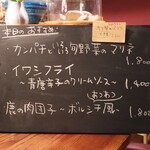 本日のおすすめ
カンパチと彩旬野菜のマリネ
1,800
イワシフライ
〜青唐辛子のクリームソース〜
1,400
(あつあつ)
鹿の肉団子-ボルシチ風-
1,80